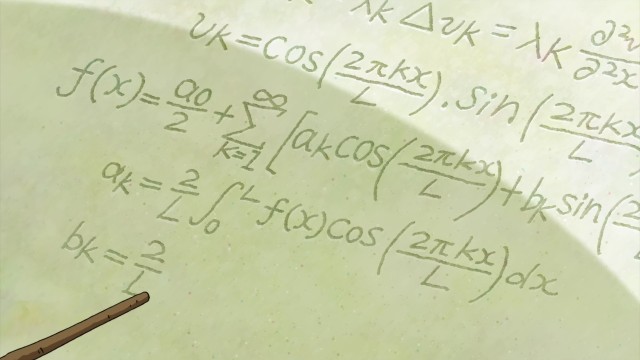 λk Δvk = λk ∂²v/∂²x
vk = cos(2πkx/L), sin(2πkx/L
f(x) = a0/2 + ∑_{k=1}^{∞} [ak cos(2πkx/L) + bk sin(2
ak = 2/L ∫_0^L f(x) cos(2πkx/L) dx
bk = 2/L